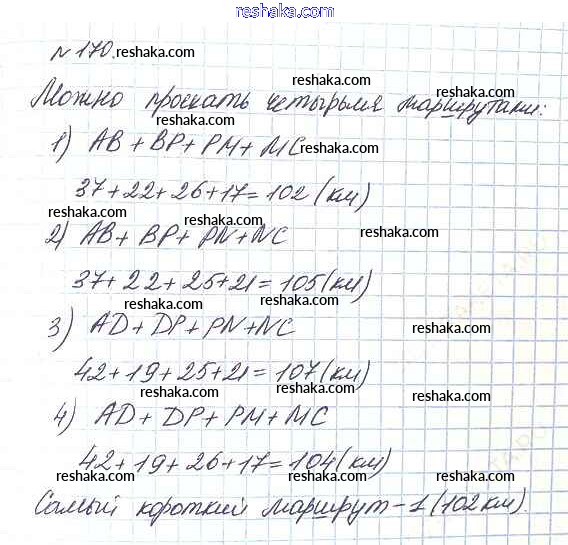 reshaka.com
№170. reshaka.com
reshaka.com reshaka.com
Можно проехать четырьмя маршрутами:
reshaka.com
1) AB + BP + PM + MC reshaka.com
reshaka.com
37+22+26+17=102 (км)
reshaka.com reshaka.com reshaka.com
2) AB + BP + PN + NC
reshaka.com
37+22+25+21=105 (км)
reshaka.com reshaka.com
3) AD + DP + PN + NC reshaka.com
reshaka.com
42+19+25+21=107 (км)
reshaka.com reshaka.com
4) AD + DP + PM + MC
reshaka.com
42+19+26+17=104 (км)
reshaka.com reshaka.com
reshaka.com
Самый короткий маршрут – 1 (102 км).
reshaka.com